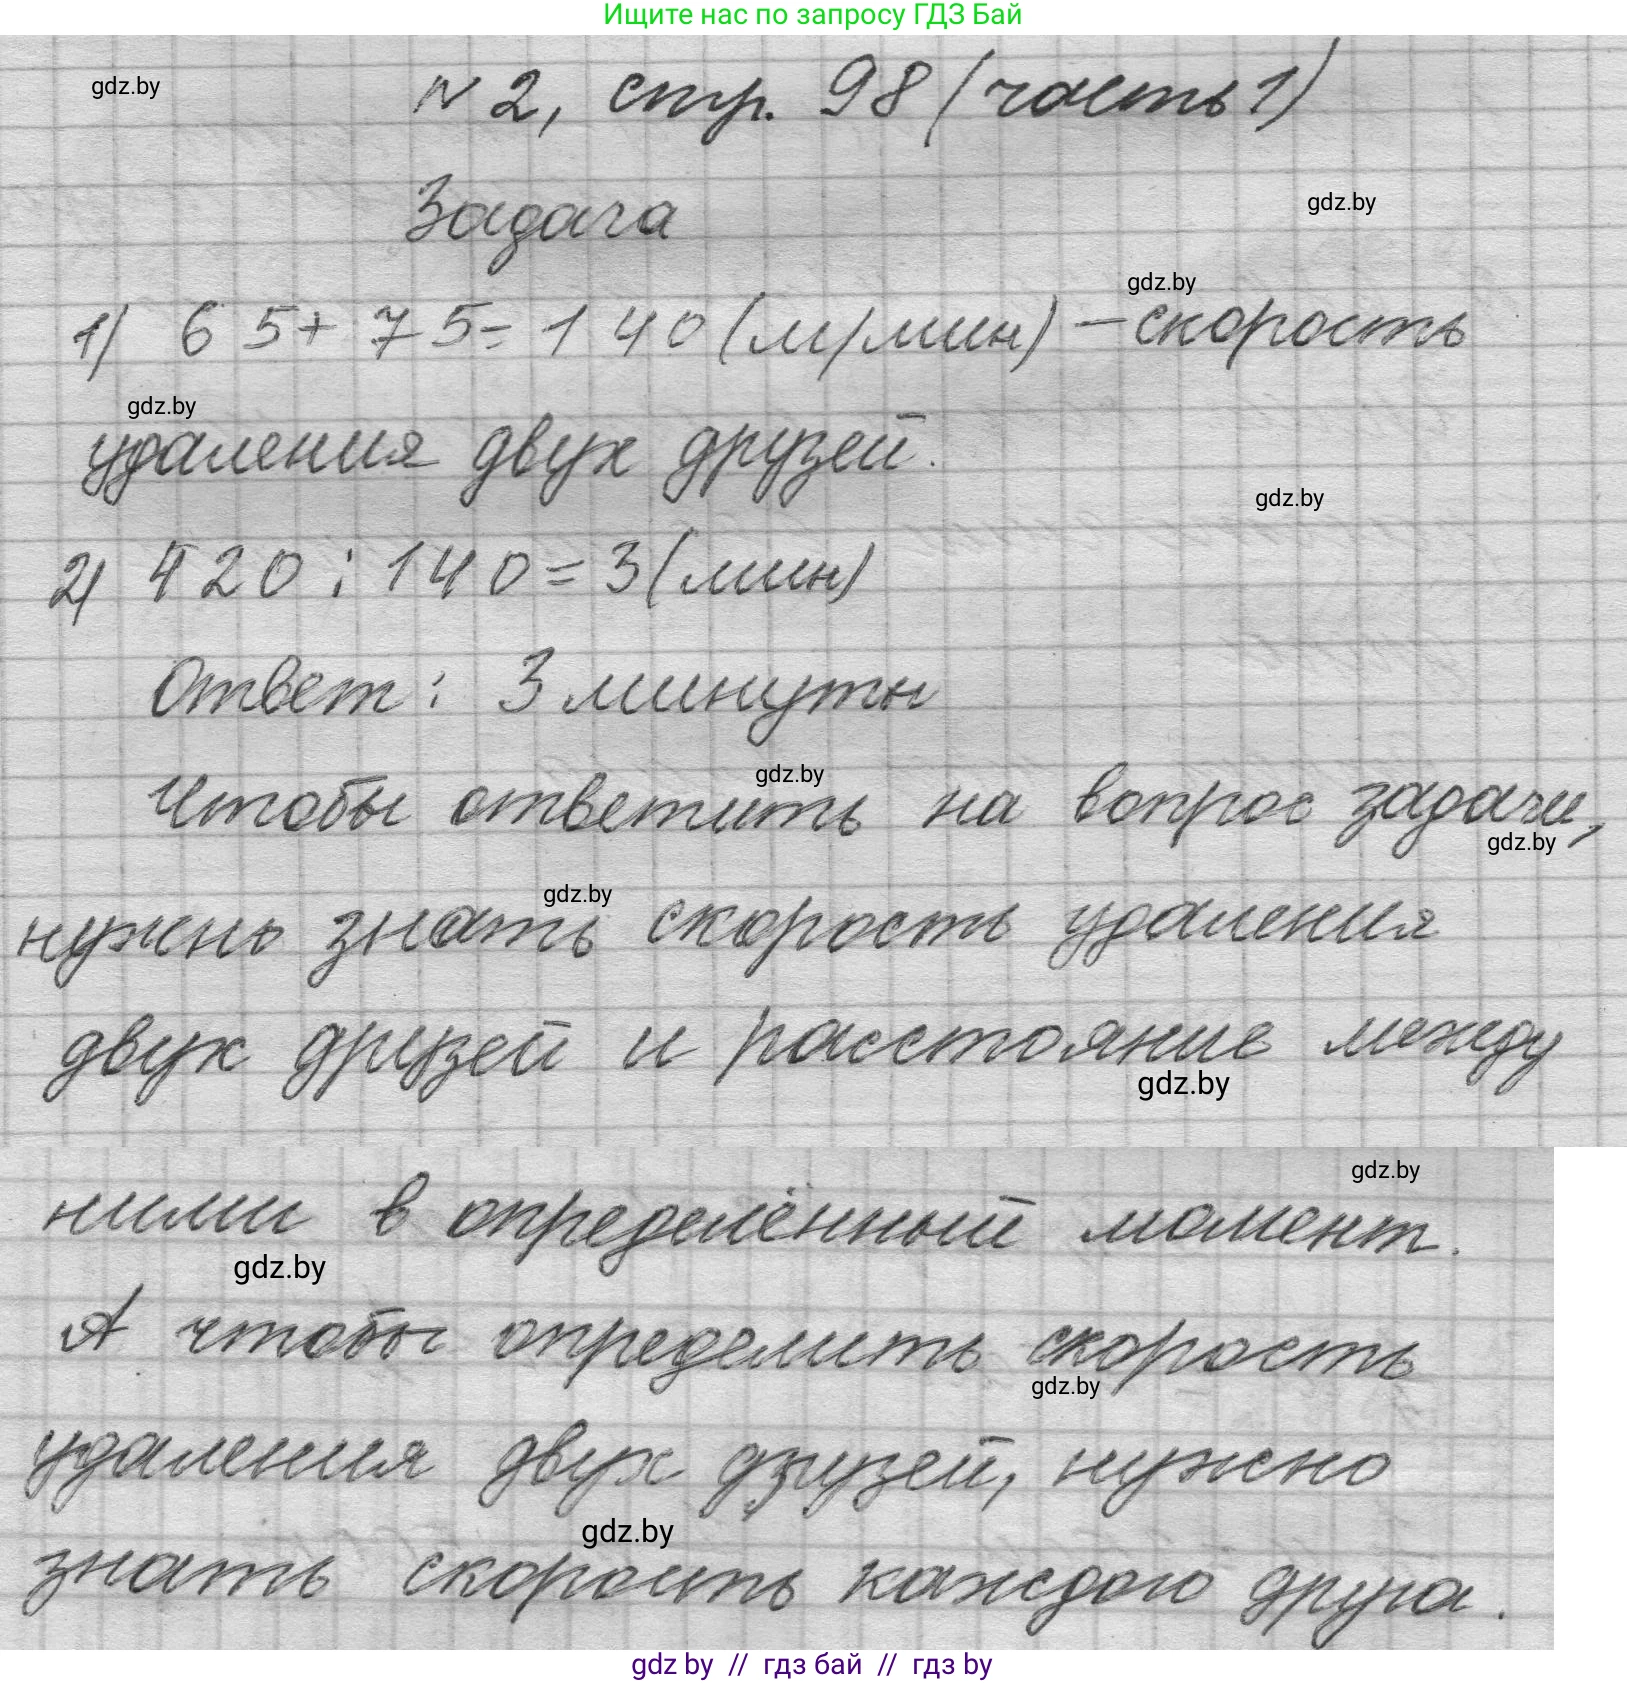 Ищите нас по запросу ГДЗ Бай
gdz.by
№2, стр. 98 (часть 1)
Задача
gdz.by
gdz.by
1) 65+75=140 (м/мин) - скорость
gdz.by
удаления двух друзей.
gdz.by
2) 420:140=3 (мин)
Ответ: 3 минуты
gdz.by
Чтобы ответить на вопрос задачи,
gdz.by
gdz.by
нужно знать скорость удаления
двух друзей и расстояние между
gdz.by
gdz.by
ними в определённый момент.
gdz.by
А чтобы определить скорость
gdz.by
удаления двух друзей, нужно
gdz.by
знать скорость каждого друга.
gdz by // гдз бай // гдз by